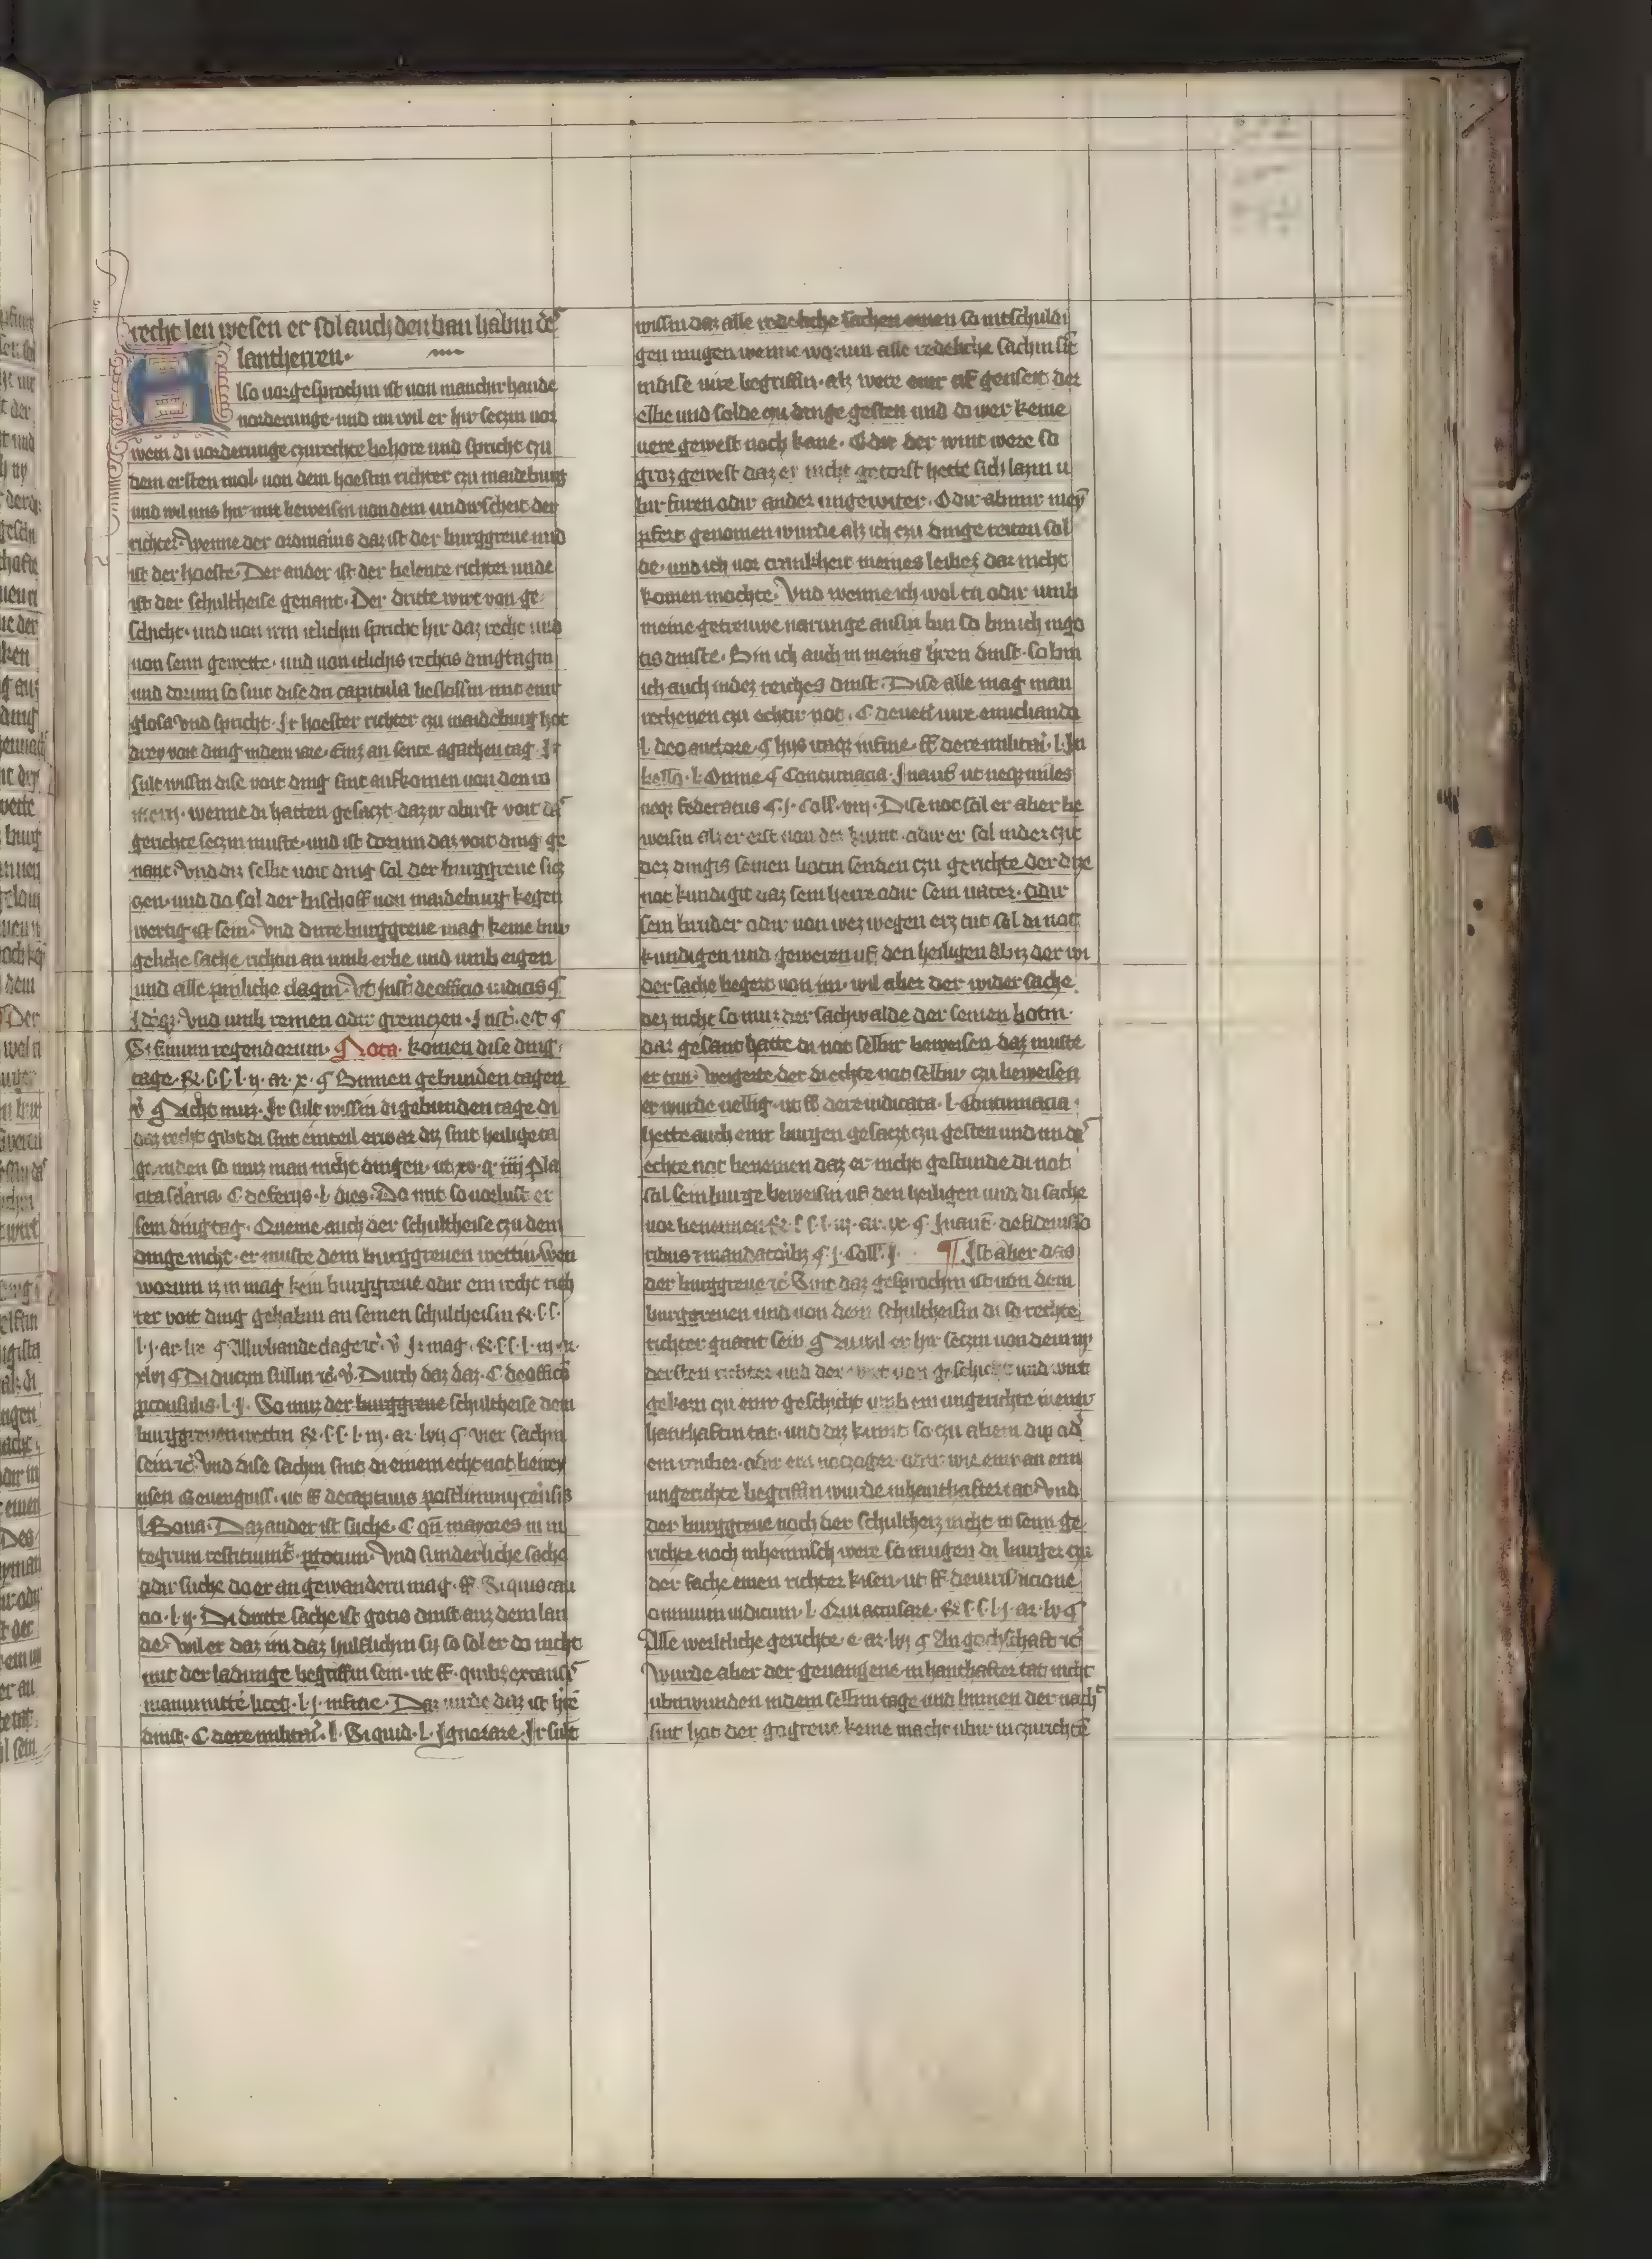 recht len wesen er sol auch den ban habin des
lantherren.
Also vorgesprochin ist von manchir hande
vorderunge und nu wil er hir seczin vor
wem di vorderunge czu rechte behore und spricht czu
dem ersten mol von dem hoestin richter czu maideburg
und wil uns hir mit beweisin von dem undirscheit der
richter. Wenne der ordinarius daz ist der burggreve und
ist der hoeste. Der ander ist der belente richter unde
ist der schultheise genant. Der dritte wirt von ge
schicht. und von irm iclichin spricht hir daz recht und
von senn gewette. und von iclichis rechtis dingtagin
und dorum so sint dise dri capitula beslossin mit einir
glosa Vnd spricht. Ir hoester richter czu maideburg hot
drey voit ding in dem iare. Einz an sente agathen tag. Ir
sult wissin dise voit ding sint aufkomen von den ro
mern. wenne di hatten gesaczt daz ir obirst voit daz
gerichte seczin muste. und ist dorum daz voit ding ge
nant. Vnd diz selbe voit ding sol der burggreve sic
zen. und do sol der bischoff von maideburg kegen
wertig ist sein. Vnd dirre burggreve mag keine bur
gliche sache richtin an umb erbe und umb eigen
und alle pinliche clagin. Vt insti. de officio iudicis §
Vnd umb reinen odir greniczen. Insti. e. t. §
Si finium regendorum. Nota. komen dise ding
tage. R. l. l. l. ij. ar. x. § Binnen gebunden tagen
v. § Nicht muz. Ir sult wissin di gebunden tage di
daz recht gibt di sint einteil erwar diz sint heilige ta
ge in den so muz man nicht dingen. ut xv. q. iiij Pla
cita secularia. C de ferijs. l. dies. Do mit so vorlust er
sein dingtag. Queme auch der schultheise czu dem
dinge nicht. er muste dem burggreven wettin. Wen
worum iz in mag kein burggreve odir ein recht rich
ter voit ding gehabin an seinen schultheisin R. l. l.
l. j. ar. lix § Allirhande clage ic. v. Ir mag. R. l. l. l. iij. ar.
xlvj § Di duczin sullin ic. v. Durch daz daz. C. de officio
proconsulis. l. j. So muz der burggreve schultheise dem
burggreven wettin R. l. l. l. iij. ar. lvij § vier sachin
sein ic. Vnd dise sachin sint di einem echt not bewey
usen Gevengniss. ut ff de captivis postliminij reversis
l. Bona. Daz ander ist suche. C qn mayores in in
tegrum restituuntur. procum. Vnd sunderliche sache
odir suche do er an gewandern mag. ff. Si quis cau
cio. l. ij. Di dritte sache ist gotis dinst auz dem lan
de. Wil er daz im daz hulflichin sij so sol er do nicht
mit der ladunge begriffin sein. ut ff. quibus ex causis
manumitte licet. l. j. in fine. Daz virde daz ist herren
dinst. C de re militari. l. Si quid. l. Ignorare. Ir sult
wissin daz alle redeliche sachen einen so intschuldi
gen mugen wenne worum alle redeliche sachin sie
in dise vire begriffin. alz were einir uf genseit der
elbe und solde czu dinge gesten und do wer keine
vere gewest noch kane. Odir der wint were so
groz gewest daz er nicht geturst hette sich lazin u
bir furen odir ander ungewiter. Odir ab mir mein
pfert genomen wurde alz ich czu dinge reiten sol
de. und ich vor crankheit meines leibes dar nicht
komen mochte. Vnd wenne ich wol tu odir umb
meine getreuwe narunge ausin bin so bin ich in go
tis dinste. Bin ich auch in meins hren dinst. so bin
ich auch in dez reiches dinst. Dise alle mag man
rechenen czu echtir not. C de veteri iure enucliando
l. deo auctore. § hijs itaque in fine. ff de re militari. l. In
bello. l. Omne § Contumacia. In aut ut neque miles
neque federatus § j. Coll. viij. Dise not sol er aber be
weisin alz er erst von der kumt. odir er sol in der czit
dez dingis seinen botin senden czu gerichte der dize
not kundigit daz sein herre odir sein vater. odir
sein bruder odir von wez wegen erz tut sol di not
kundigen und geweren uf den heiligen ab iz der wi
der sache begert von im. wil aber der wider sache
dez nicht so muz der sachwalde der seinen botin
dar gesant hatte di not selbir beweisen daz muste
er tun. Weigerte der di echte not selbir czu beweisen
er wurde vellig. ut ff de re iudicata. l. Contumacia.
hette auch einir burgen gesaczt czu gesten und im di
echte not benemen daz er nicht gestunde di not
sol sein burge beweisin uf den heiligen und di sache
vor benennen R. l. l. l. iij. ar. ix. § In aut. de fideiusso
ribus et mandatoribus § j. Coll. j. ¶ Ist aber das
der burggreve ic. Sint daz gesprochin ist von dem
burggreven und von dem schultheisin di so rechte
richter gnant sein § Nu wil er hir seczin von dem in
dersten richter und der wirt von geschicht und wirt
gekorn czu einir geschicht umb ein ungerichte in einir
hanthaftin tat. und diz kumt so czu abein dip odir
ein rouber. odir ein notczoger. odir wie einir an eim
ungerichte begriffin wurde in hanthafter tat. Vnd
der burggreve noch der schultheiz nicht in senn ge
richte noch inheimisch were so mugen di burger czu
der sache einen richter kisen. ut ff. de iurisdicione
omnium iudicum. l. Qui accusare. R. l. l. l. j. ar. lv §
Alle werltliche gerichte. e. ar. lvj § An gochschaft ic.
Wurde aber der gevangene in hanthafter tat nicht
ubirwunden in dem selbin tage und binnen der nach
sint hot der gogreve keine macht ubir in czu richte